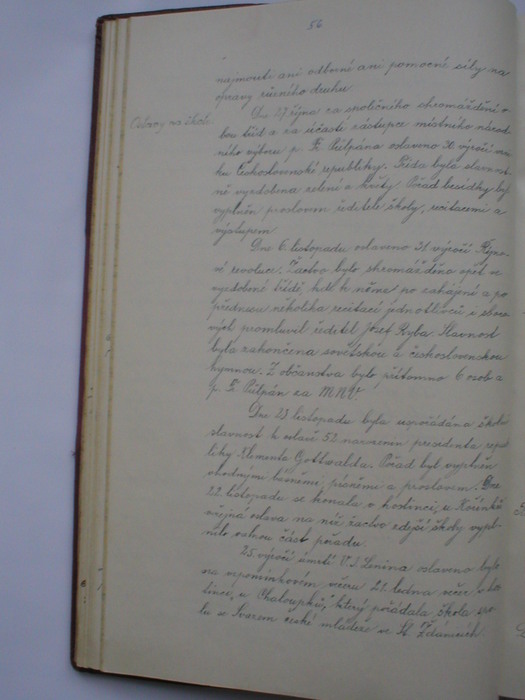 56
najmouti ani odborné ani pomocné síly na
opravy různého druhu.
Oslavy na škole.
Dne 27. října za společného shromáždění o-
bou tříd a za účasti zástupce místního národ
ního výboru p. Fr. Půlpána oslaveno 30. výročí vzni
ku Československé republiky. Třída byla slavnost
ně vyzdobena zelení a květy. Pořad besídky byl
vyplněn proslovem ředitele školy, recitacemi a
výstupem.
Dne 6. listopadu oslaveno 31. výročí Říjno-
vé revoluce. Žactvo bylo shromážděno opět ve
vyzdobené třídě, kde k němu po zahájení a po
přednesu několika recitací jednotlivců i sboro
vých promluvil ředitel Josef Ryba. Slavnost
byla zakončena sovětskou a československou
hymnou. Z občanstva bylo přítomno 6 osob a
p. Fr. Půlpán za M.N.V.
Dne 23. listopadu byla uspořádána školní
slavnost k oslavě 52. narozenin presidenta repub
liky Klementa Gottwalda. Pořad byl vyplněn
vhodnými básněmi, písněmi a proslovem. Dne
22. listopadu se konala v hostinci „u Kořínků"
veřejná oslava na níž žactvo zdejší školy vypl-
nilo valnou část pořadu.
25. výročí úmrtí V. I. Lenina oslaveno bylo
na vzpomínkovém večeru 21. ledna večer v hos
tinci „u Chaloupků", který pořádala škola spo
lu se Svazem české mládeže ve St. Ždánicích.